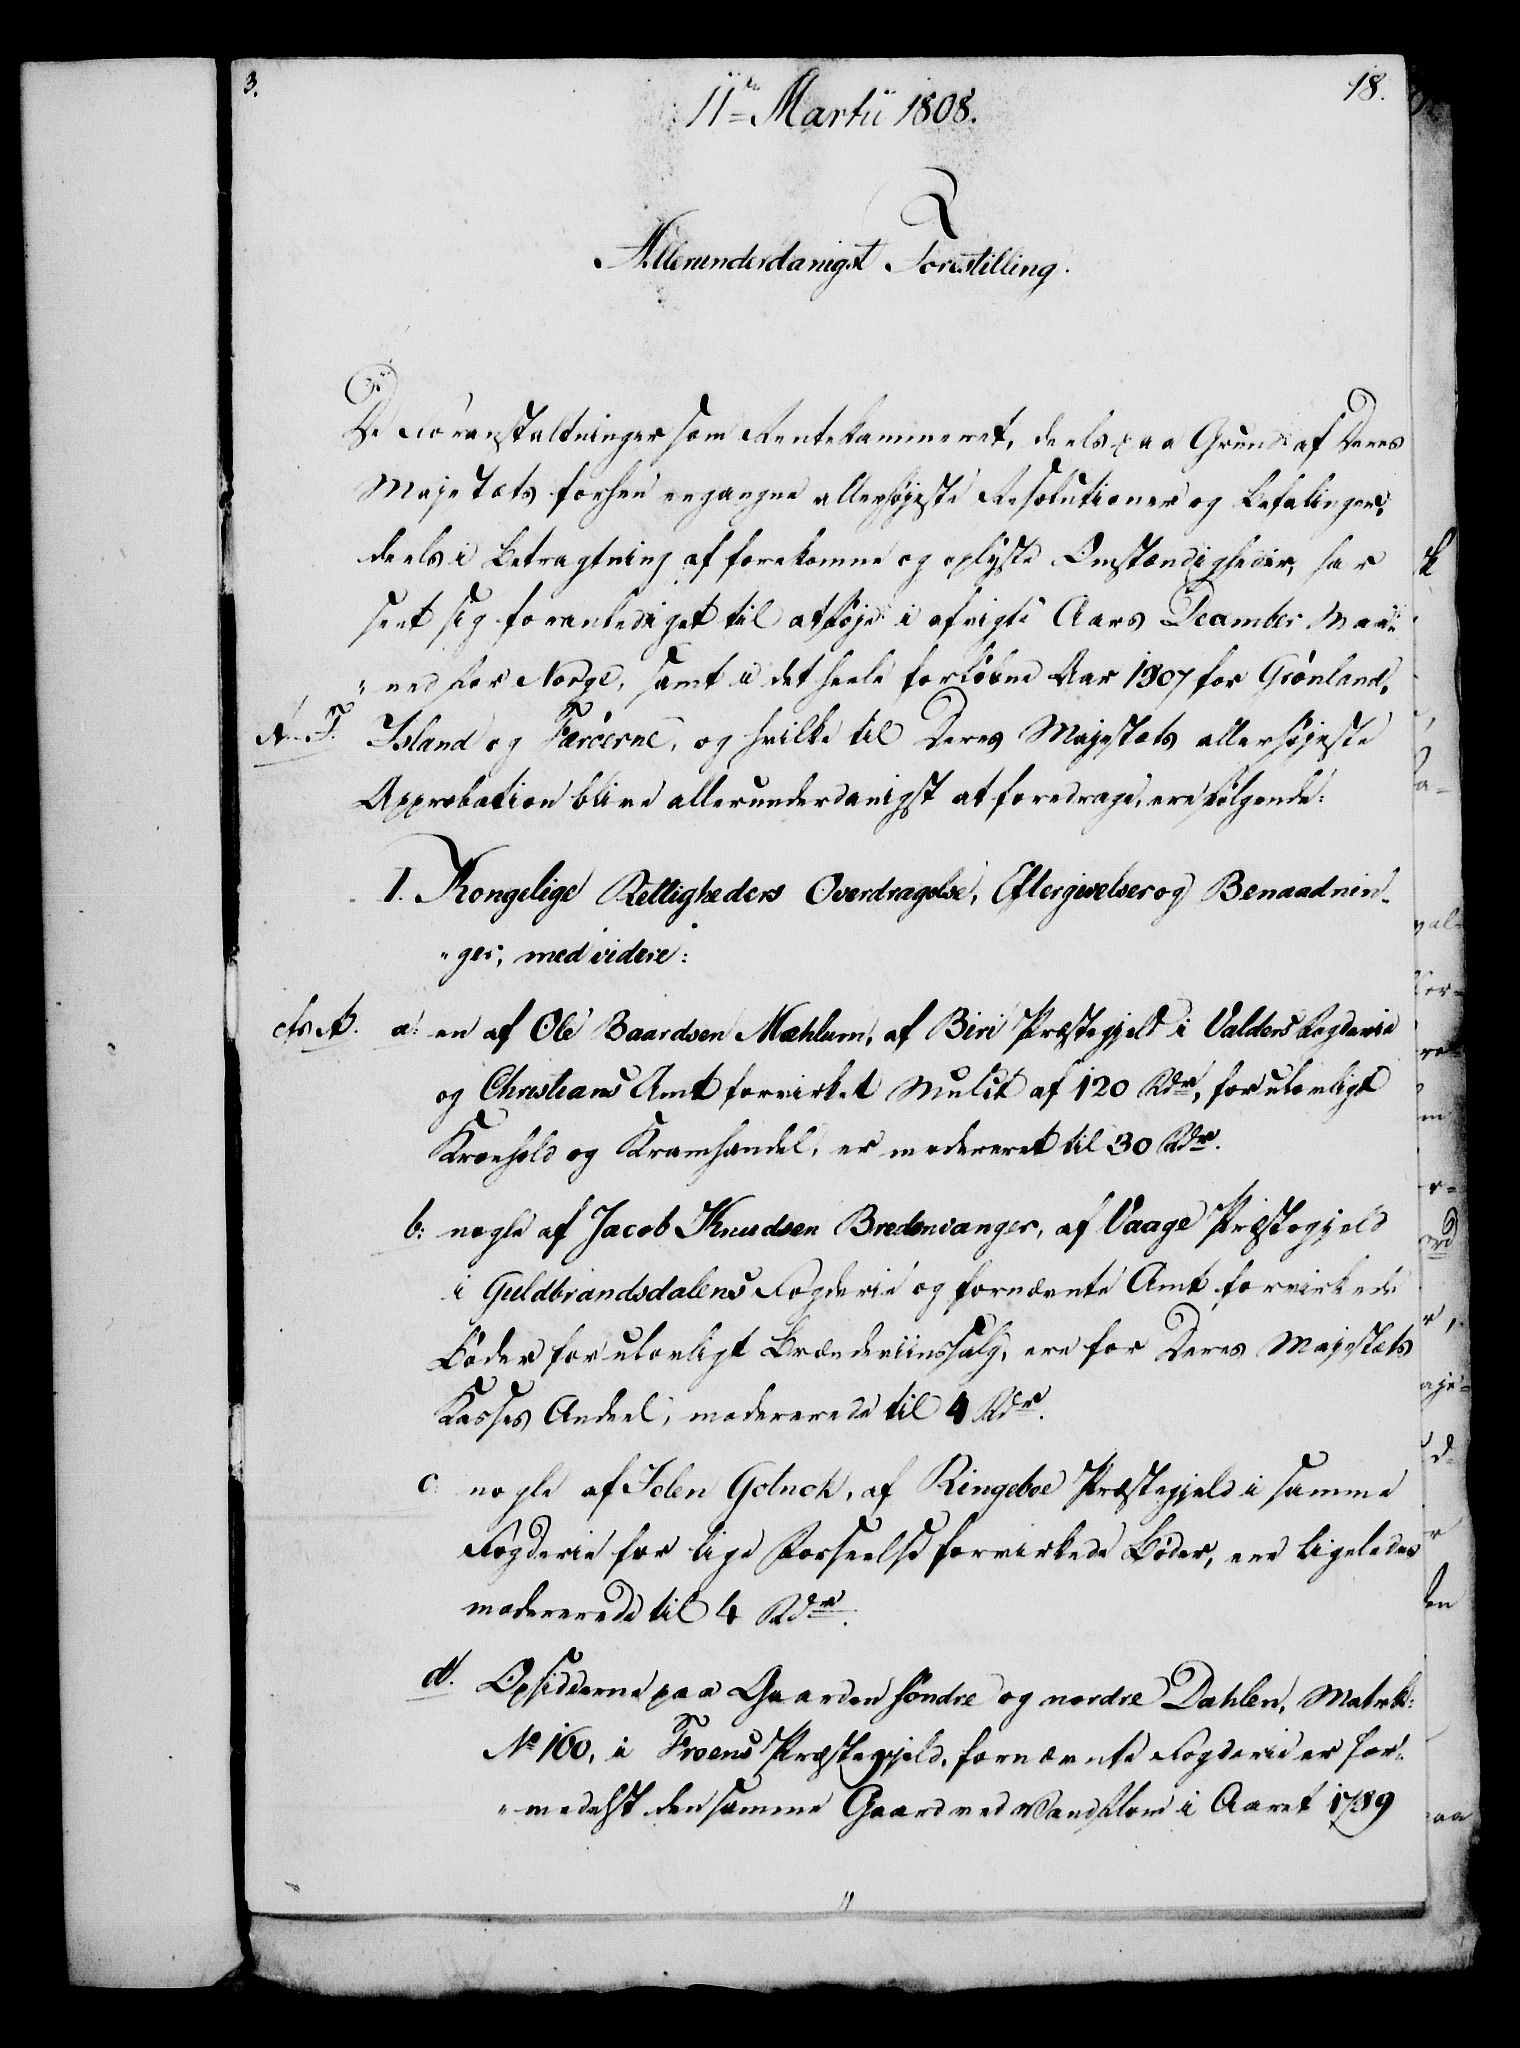 3.
18.
11te Martii 1808.
Allerunderdanigst Forestilling.
De Foranstaltninger som Rentekammeret, deels paa Grund af Deres
Majestæts forhen ergangne allerhøjeste Resolutioner og Befalinger,
deels i Betragtning af forekomne og oplyste Omstændigheder, har
seet sig foranlediget til at føje i afvigte Aars December Maa-
"ned for Norge, samt i det heele forløbne Aar 1807 for Grønland,
Island og Færöerne, og hvilke til Deres Majestæts allerhøjeste
Approbation blive allerunderdanigst at foredrage, ere følgende:
1. Kongelige Rettigheders Overdragelse, Eftergivelser og Benaadnin-
"ger, med videre:
a: en af Ole Baardsen Mæhlum, af Biri Præstegjeld i Valders Fogderie
og Christians Amt forvirket Mulct af 120 Rdr, for ulovligt
Kroehold og Kramhandel, er modereret til 30 Rdr.
b: nogle af Jacob Knudsen Bredenvanger, af Vaage Præstegjeld
i Guldbrandsdalens Fogderie og fornævnte Amt forvirkede
Bøder for ulovligt Brændeviinssalg, ere for Deres Majestæts
Kasses Andeel, modererede til 4 Rdr.
c: nogle af Iolen Golnok, af Ringeboe Præstegjeld i samme
Fogderie for lige Forseelse forvirkede Bøder, ere ligeledes
modererede til 4 Rdr.
d. Opsidderne paa Gaarden søndre og nordre Dahlen, Matrk:
No 160, i Froens Præstegjeld, fornævnte Fogderie er for-
"medelst den samme Gaard ved Vandflom i Aaret 1789